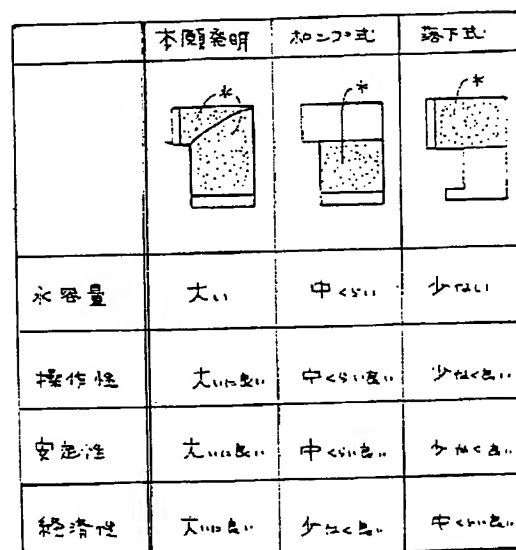 本願発明 ポンプ式 落下式
水 水 水
水容量 大い 中くらい 少ない
操作性 大いに良い 中くらい良い 少なく良い
安定性 大いに良い 中くらい良い 少なく良い
経済性 大いに良い 少なく良い 中くらい良い